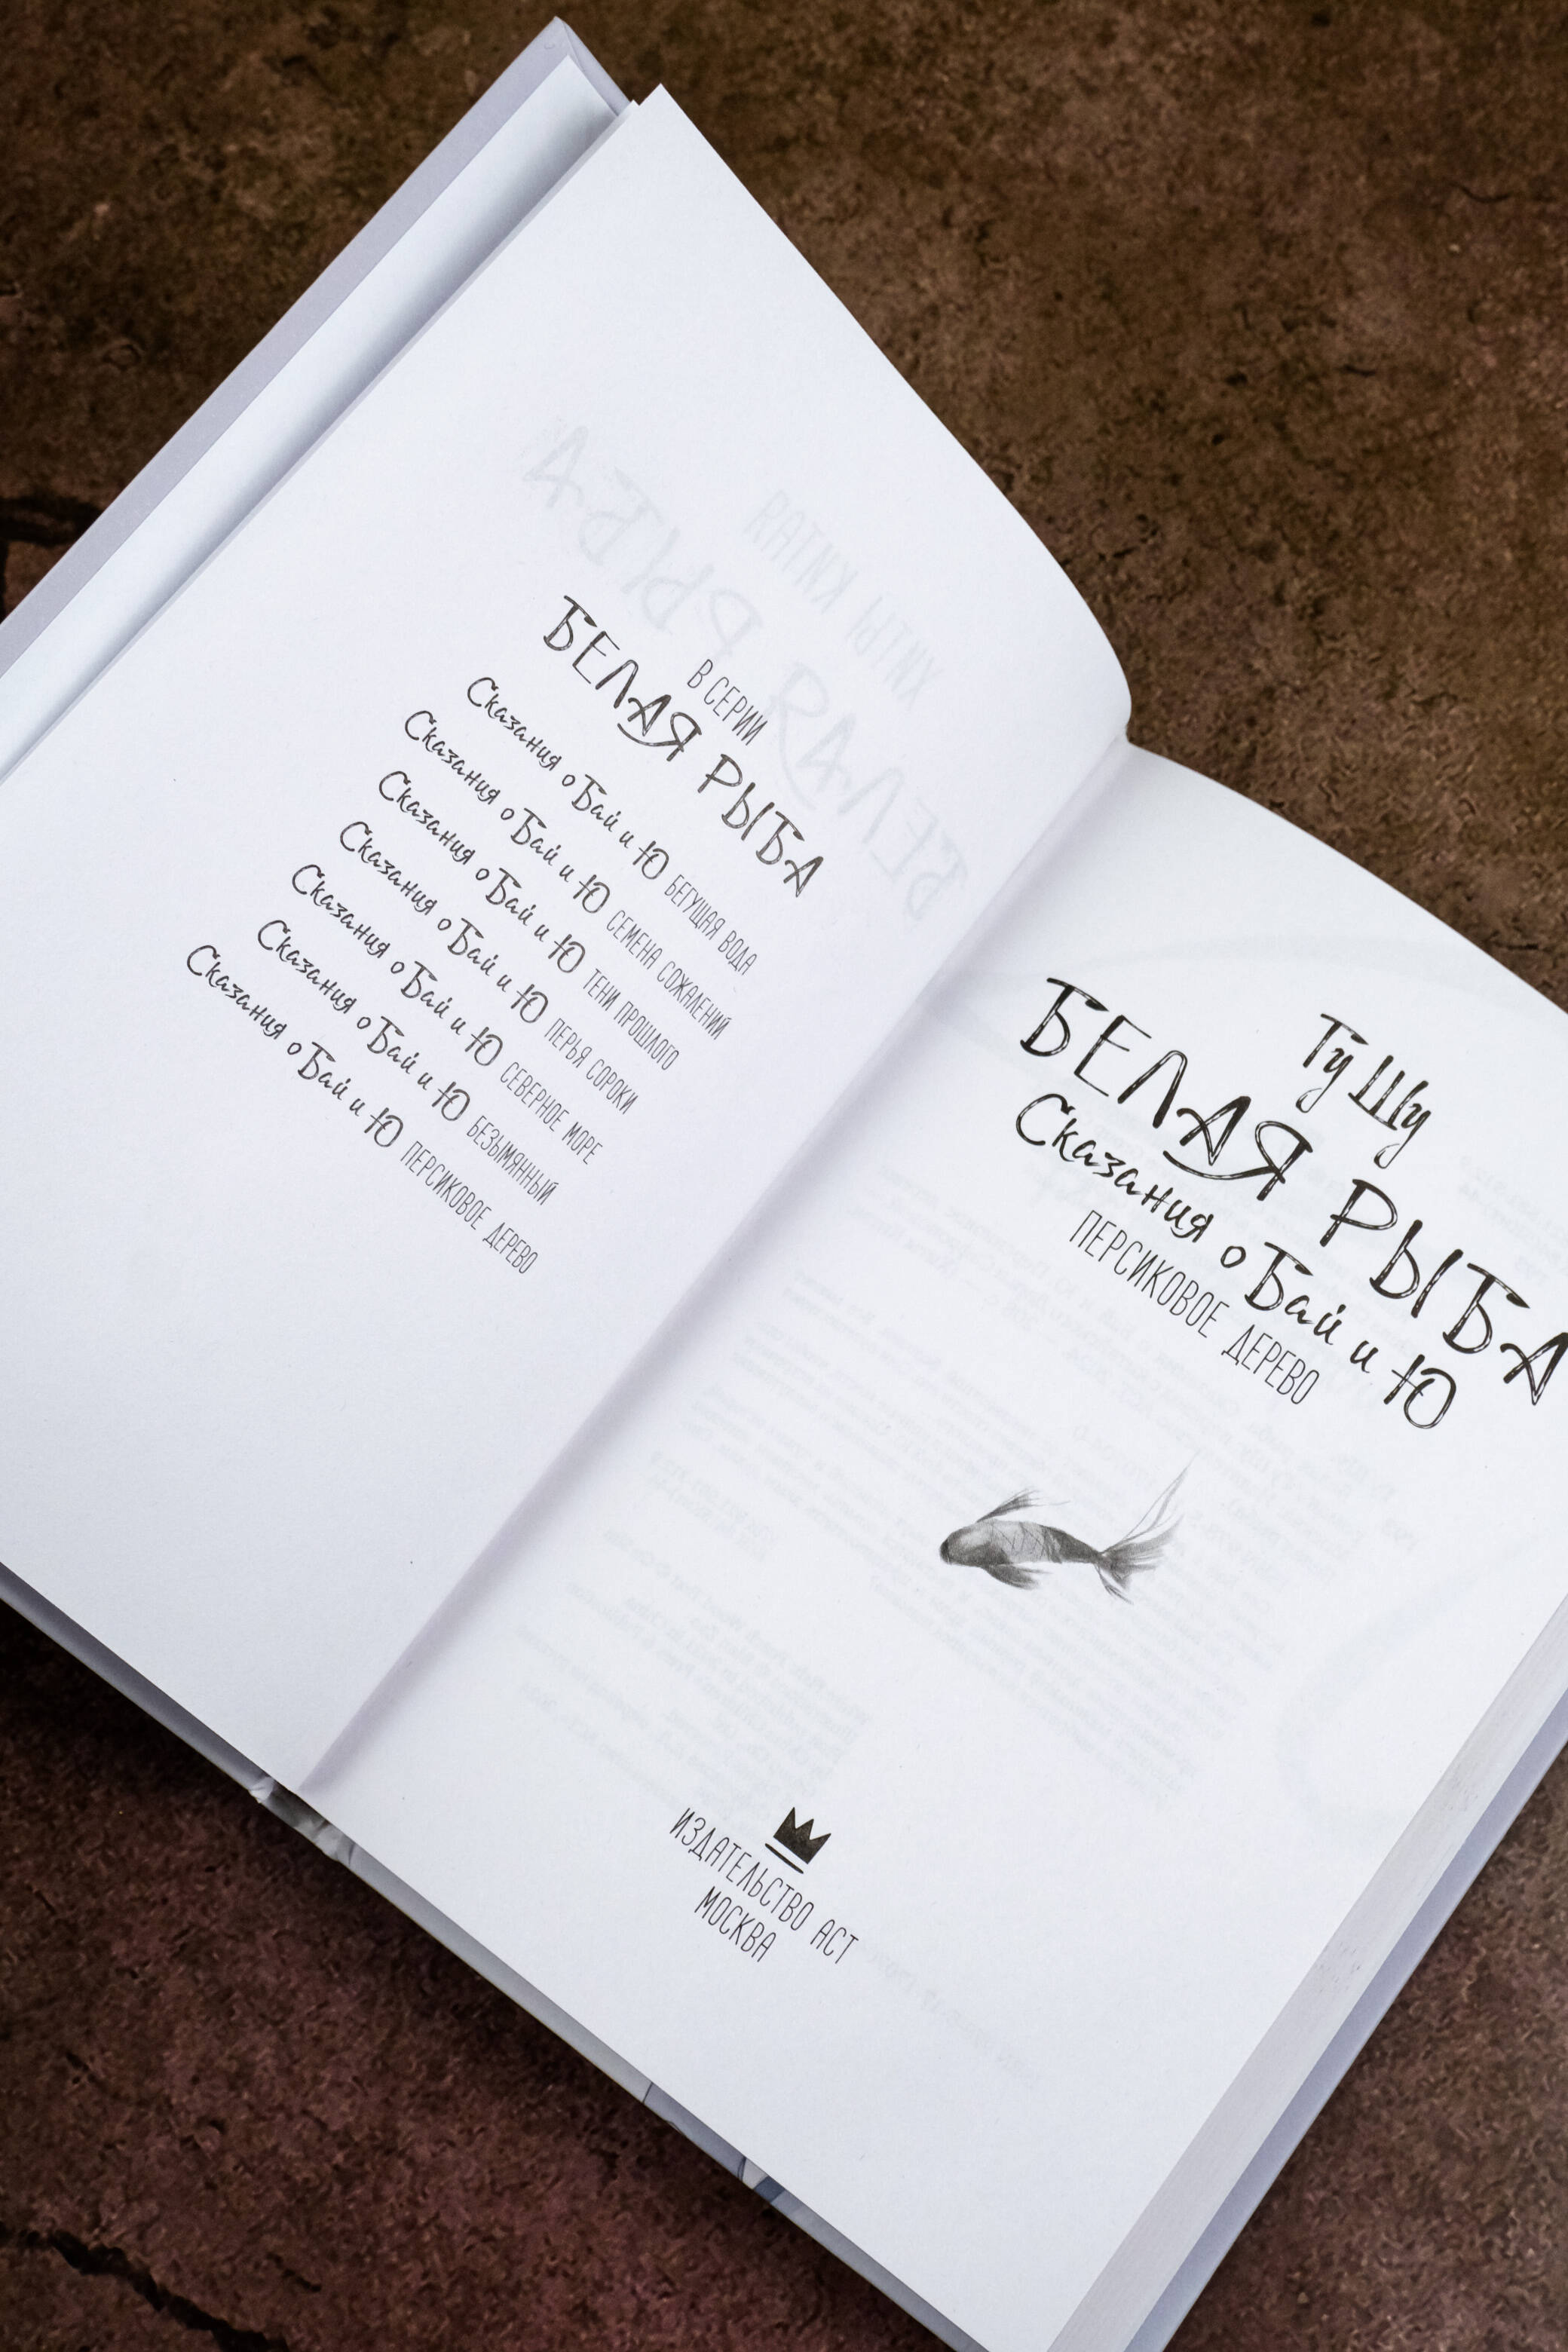 В СЕРИИ
БЕЛАЯ РЫБА
Сказания о Бай и Ю БЕГУЩАЯ ВОДА
Сказания о Бай и Ю СЕМЕНА СОЖАЛЕНИЙ
Сказания о Бай и Ю ТЕНИ ПРОШЛОГО
Сказания о Бай и Ю ПЕРЬЯ СОРОКИ
Сказания о Бай и Ю СЕВЕРНОЕ МОРЕ
Сказания о Бай и Ю БЕЗЫМЯННЫЙ
Сказания о Бай и Ю ПЕРСИКОВОЕ ДЕРЕВО
Гу Шу
БЕЛАЯ РЫБА
Сказания о Бай и Ю
ПЕРСИКОВОЕ ДЕРЕВО
ИЗДАТЕЛЬСТВО АСТ
МОСКВА